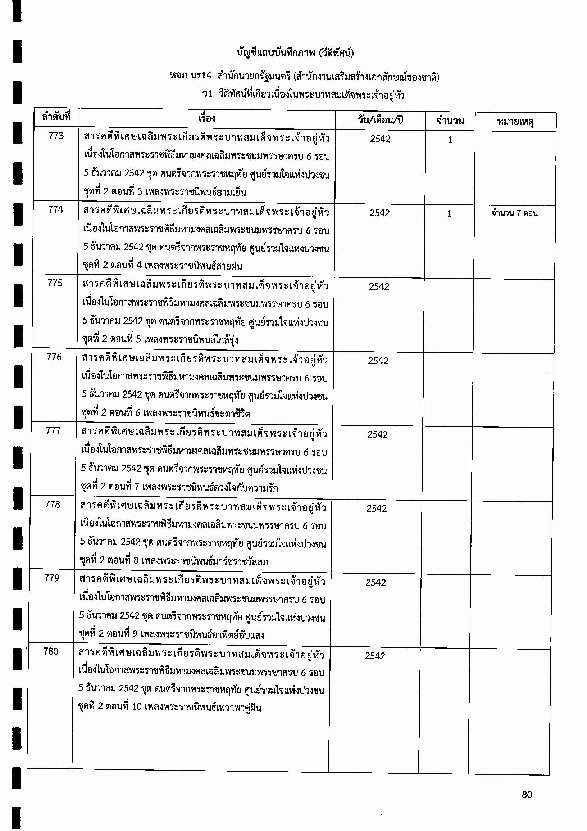 บัญชีแถบบันทึกภาพ (วีดิทัศน์)
หจภ นร14 สำนักนายกรัฐมนตรี (สำนักงานเสริมสร้างเอกลักษณ์ของชาติ)
ว1 วีดิทัศน์ที่เกี่ยวเนื่องในพระบาทสมเด็จพระเจ้าอยู่หัว
ลำดับที่ เรื่อง วัน/เดือน/ปี จำนวน หมายเหตุ
773 สารคดีพิเศษเฉลิมพระเกียรติพระบาทสมเด็จพระเจ้าอยู่หัว 2542 1
เนื่องในโอกาสพระราชพิธีมหามงคลเฉลิมพระชนมพรรษาครบ 6 รอบ
5 ธันวาคม 2542 ชุด ดนตรีจากพระราชหฤทัย ศูนย์รวมใจแห่งปวงชน
ชุดที่ 2 ตอนที่ 3 เพลงพระราชนิพนธ์ยามเย็น
774 สารคดีพิเศษเฉลิมพระเกียรติพระบาทสมเด็จพระเจ้าอยู่หัว 2542 1 จำนวน 7 ตอน
เนื่องในโอกาสพระราชพิธีมหามงคลเฉลิมพระชนมพรรษาครบ 6 รอบ
5 ธันวาคม 2542 ชุด ดนตรีจากพระราชหฤทัย ศูนย์รวมใจแห่งปวงชน
ชุดที่ 2 ตอนที่ 4 เพลงพระราชนิพนธ์สายฝน
775 สารคดีพิเศษเฉลิมพระเกียรติพระบาทสมเด็จพระเจ้าอยู่หัว 2542
เนื่องในโอกาสพระราชพิธีมหามงคลเฉลิมพระชนมพรรษาครบ 6 รอบ
5 ธันวาคม 2542 ชุด ดนตรีจากพระราชหฤทัย ศูนย์รวมใจแห่งปวงชน
ชุดที่ 2 ตอนที่ 5 เพลงพระราชนิพนธ์ใกล้รุ่ง
776 สารคดีพิเศษเฉลิมพระเกียรติพระบาทสมเด็จพระเจ้าอยู่หัว 2542
เนื่องในโอกาสพระราชพิธีมหามงคลเฉลิมพระชนมพรรษาครบ 6 รอบ
5 ธันวาคม 2542 ชุด ดนตรีจากพระราชหฤทัย ศูนย์รวมใจแห่งปวงชน
ชุดที่ 2 ตอนที่ 6 เพลงพระราชนิพนธ์ชะตาชีวิต
777 สารคดีพิเศษเฉลิมพระเกียรติพระบาทสมเด็จพระเจ้าอยู่หัว 2542
เนื่องในโอกาสพระราชพิธีมหามงคลเฉลิมพระชนมพรรษาครบ 6 รอบ
5 ธันวาคม 2542 ชุด ดนตรีจากพระราชหฤทัย ศูนย์รวมใจแห่งปวงชน
ชุดที่ 2 ตอนที่ 7 เพลงพระราชนิพนธ์ดวงใจกับความรัก
778 สารคดีพิเศษเฉลิมพระเกียรติพระบาทสมเด็จพระเจ้าอยู่หัว 2542
เนื่องในโอกาสพระราชพิธีมหามงคลเฉลิมพระชนมพรรษาครบ 6 รอบ
5 ธันวาคม 2542 ชุด ดนตรีจากพระราชหฤทัย ศูนย์รวมใจแห่งปวงชน
ชุดที่ 2 ตอนที่ 8 เพลงพระราชนิพนธ์มาร์ชราชวัลลภ
779 สารคดีพิเศษเฉลิมพระเกียรติพระบาทสมเด็จพระเจ้าอยู่หัว 2542
เนื่องในโอกาสพระราชพิธีมหามงคลเฉลิมพระชนมพรรษาครบ 6 รอบ
5 ธันวาคม 2542 ชุด ดนตรีจากพระราชหฤทัย ศูนย์รวมใจแห่งปวงชน
ชุดที่ 2 ตอนที่ 9 เพลงพระราชนิพนธ์อาทิตย์อับแสง
780 สารคดีพิเศษเฉลิมพระเกียรติพระบาทสมเด็จพระเจ้าอยู่หัว 2542
เนื่องในโอกาสพระราชพิธีมหามงคลเฉลิมพระชนมพรรษาครบ 6 รอบ
5 ธันวาคม 2542 ชุด ดนตรีจากพระราชหฤทัย ศูนย์รวมใจแห่งปวงชน
ชุดที่ 2 ตอนที่ 10 เพลงพระราชนิพนธ์เทวาพาคู่ฝัน
80